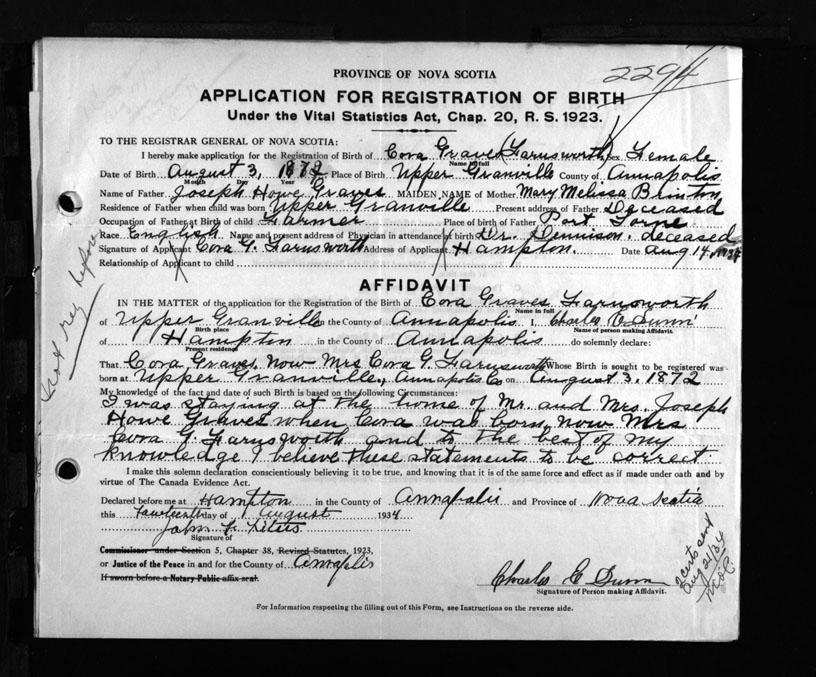 2294
PROVINCE OF NOVA SCOTIA
APPLICATION FOR REGISTRATION OF BIRTH
Under the Vital Statistics Act, Chap. 20, R. S. 1923.
TO THE REGISTRAR GENERAL OF NOVA SCOTIA:
I hereby make application for the Registration of Birth of Cora Graves (Farnsworth) Sex Female
Name in full
Date of Birth August 3, 1872 Place of Birth Upper Granville County of Annapolis
Month Day Year
Name of Father Joseph Howe Graves MAIDEN NAME of Mother Mary Melissa Brinton
Residence of Father when child was born Upper Granville Present address of Father Deceased
Occupation of Father at Birth of child Farmer Place of birth of Father Port Lorne
Race English Name and present address of Physician in attendance at birth Dr. Dennison. deceased
Signature of Applicant Cora G. Farnsworth Address of Applicant Hampton. Date Aug 14, 1934
Relationship of Applicant to child
Not reg before
AFFIDAVIT
IN THE MATTER of the application for the Registration of the Birth of Cora Graves Farnsworth
Name in full
of Upper Granville in the County of Annapolis I, Charles E Dunn
Birth place Name of person making Affidavit.
of Hampton in the County of Annapolis do solemnly declare:
Present residence
That Cora Graves, Now Mrs Cora G. Farnsworth Whose Birth is sought to be registered was
born at Upper Granville, Annapolis Co on August 3, 1872
My knowledge of the fact and date of such Birth is based on the following Circumstances:
I was staying at the home of Mr. and Mrs. Joseph
Howe Graves when Cora was born, now Mrs
Cora G. Farnsworth and to the best of my
knowledge I believe these statements to be correct
I make this solemn declaration conscientiously believing it to be true, and knowing that it is of the same force and effect as if made under oath and by
virtue of The Canada Evidence Act.
Declared before me at Hampton in the County of Annapolis and Province of Nova Scotia
this Fourteenth day of August 1934
John
Signature of
Commissioner under Section 5, Chapter 38, Revised Statutes, 1923,
or Justice of the Peace in and for the County of Annapolis
If sworn before a Notary Public affix seal.
Charles E Dunn
Signature of Person making Affidavit.
2 certs sent
Aug 21/34
For Information respecting the filling out of this Form, see Instructions on the reverse side.